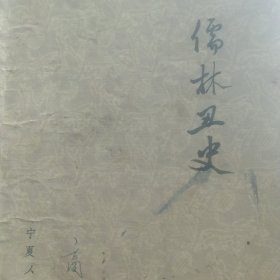 儒林丑史
宁夏人